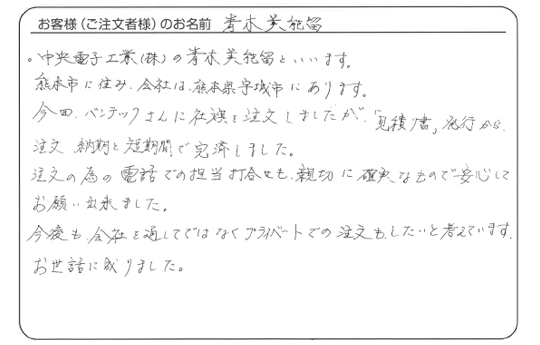 お客様(ご注文者様)のお名前 青木美能留
。中央電子工業(株)の青木美能留といいます。
熊本市に住み、会社は、熊本県宇城市にあります。
今回、バンテックさんに社旗を注文しましたが、「見積り書」発行から、
注文 納期と短期間で完済しました。
注文の為の電話での担当打合せも、親切に確実なもので安心して
お願い出来ました。
今後も、会社を通してではなくプライベートでの注文も、したいと考えています。
お世話に成りました。